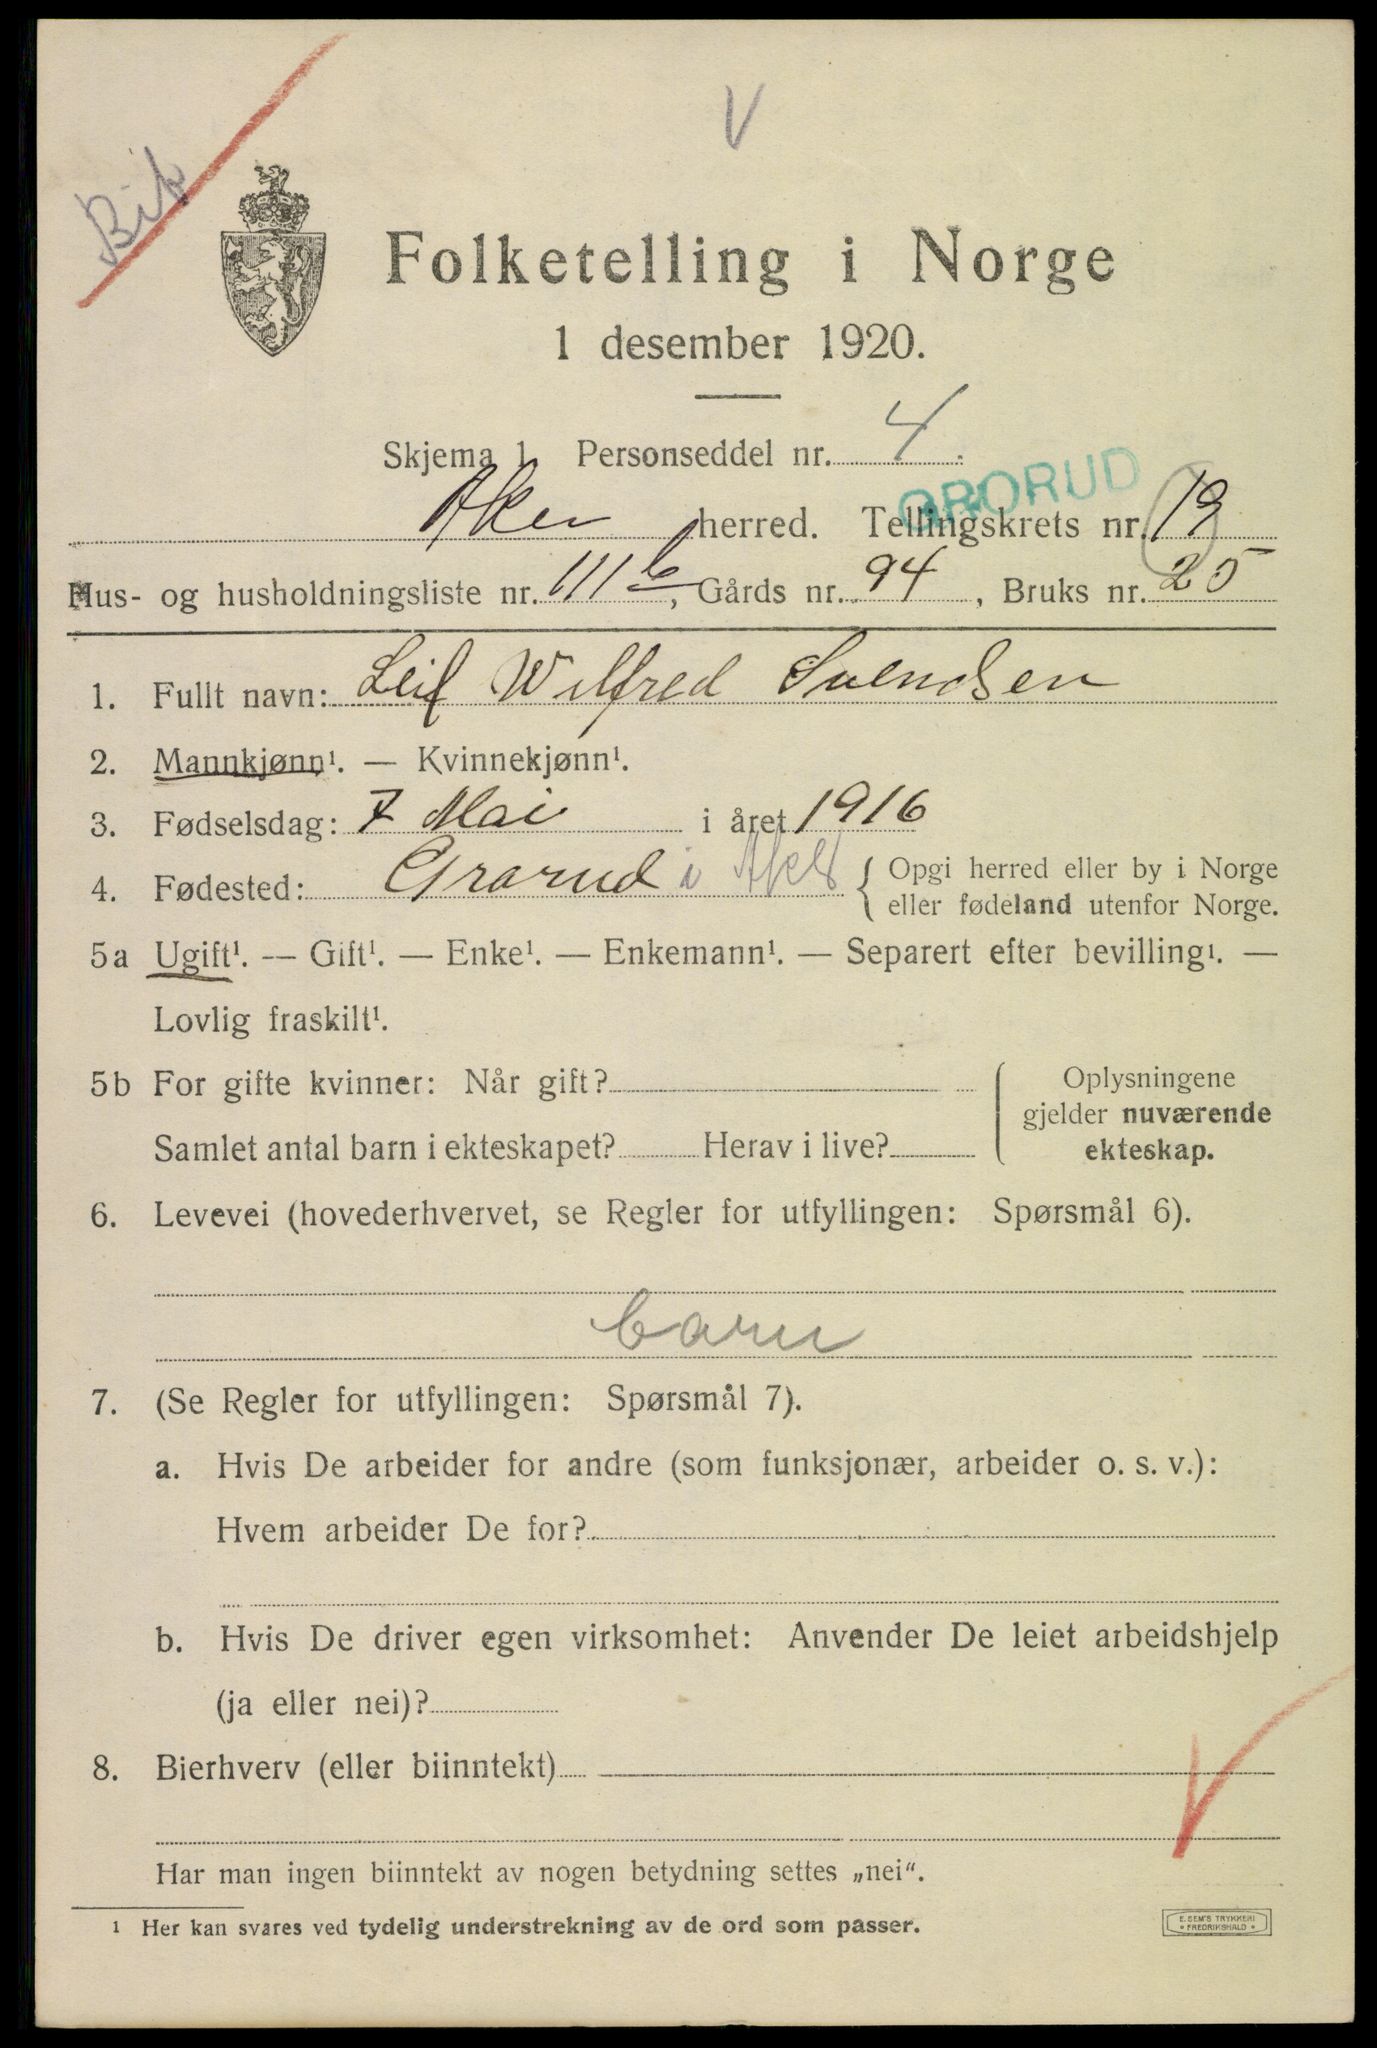 V
Bik
Folketelling i Norge
1 desember 1920.
Skjema 1. Personseddel nr. 4.
GRORUD
Aker herred. Tellingskrets nr. 19
Hus- og husholdningsliste nr. 111 b, Gårds nr. 94, Bruks nr. 25
1. Fullt navn: Leif Wilfred Svendsen
2. Mannkjønn¹. — Kvinnekjønn¹.
3. Fødselsdag: 7 Mai i året 1916
4. Fødested: Grorud i Aker { Opgi herred eller by i Norge
eller fødeland utenfor Norge.
5a Ugift¹. — Gift¹. — Enke¹. — Enkemann¹. — Separert efter bevilling¹. —
Lovlig fraskilt¹.
5b For gifte kvinner: Når gift?
Samlet antal barn i ekteskapet? Herav i live?
Oplysningene
gjelder nuværende
ekteskap.
6. Levevei (hovederhvervet, se Regler for utfyllingen: Spørsmål 6).
barn
7. (Se Regler for utfyllingen: Spørsmål 7).
a. Hvis De arbeider for andre (som funksjonær, arbeider o. s. v.):
Hvem arbeider De for?
b. Hvis De driver egen virksomhet: Anvender De leiet arbeidshjelp
(ja eller nei)?
8. Bierhverv (eller biinntekt)
Har man ingen biinntekt av nogen betydning settes „nei“.
¹ Her kan svares ved tydelig understrekning av de ord som passer.
E. SEM'S TRYKKERI
FREDRIKSHALD